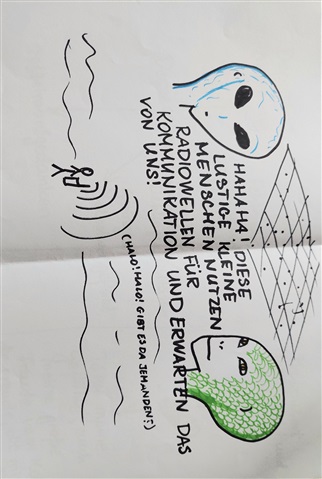 HAHAHA! DIESE
LUSTIGE KLEINE
MENSCHEN NUTZEN
RADIOWELLEN FÜR
KOMMUNIKATION UND ERWARTEN DAS
VON UNS!
(HALO! HALO! GIBT ES DA JEMANDEN?)